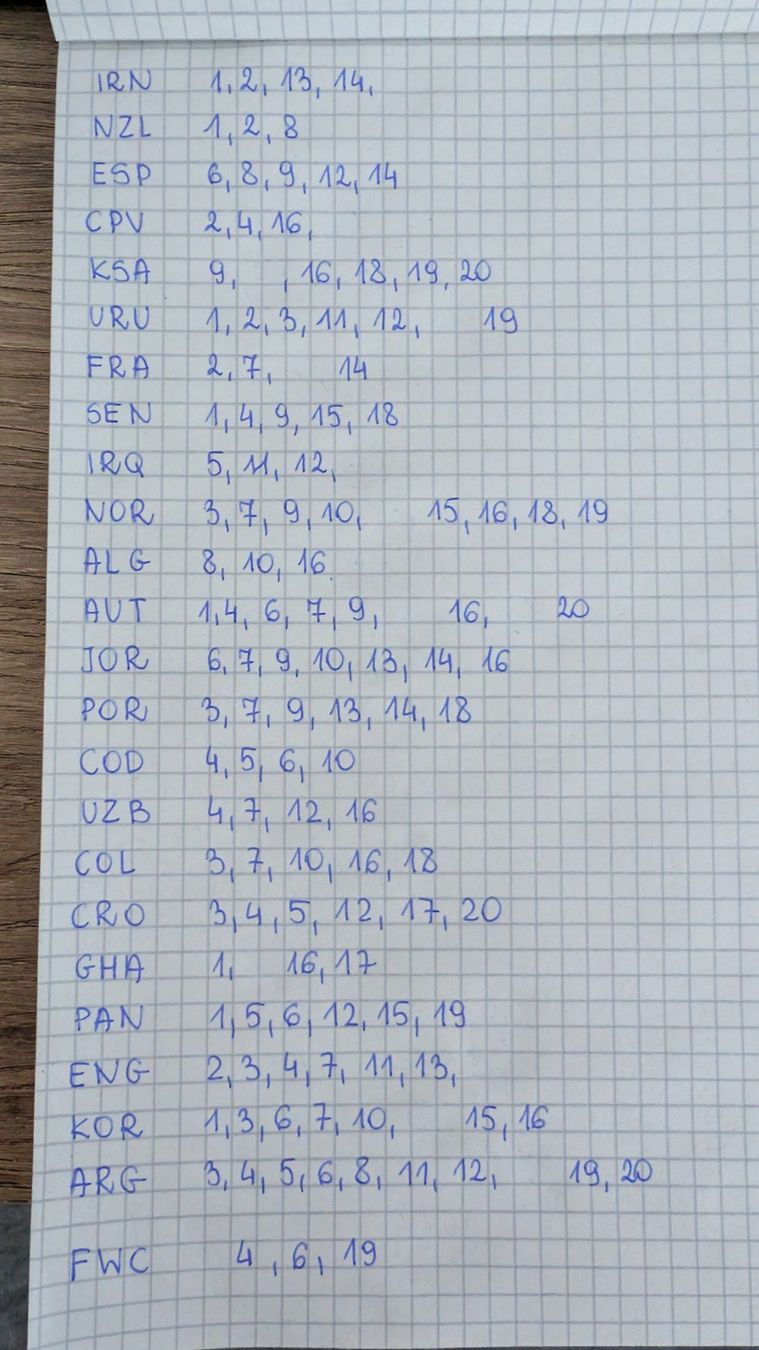 IRN 1, 2, 13, 14,
NZL 1, 2, 8
ESP 6, 8, 9, 12, 14
CPV 2, 4, 16,
KSA 9, , 16, 18, 19, 20
URU 1, 2, 3, 11, 12, 19
FRA 2, 7, 14
SEN 1, 4, 9, 15, 18
IRQ 5, 11, 12,
NOR 3, 7, 9, 10, 15, 16, 18, 19
ALG 8, 10, 16
AUT 1, 4, 6, 7, 9, 16, 20
JOR 6, 7, 9, 10, 13, 14, 16
POR 3, 7, 9, 13, 14, 18
COD 4, 5, 6, 10
UZB 4, 7, 12, 16
COL 3, 7, 10, 16, 18
CRO 3, 4, 5, 12, 17, 20
GHA 1, 16, 17
PAN 1, 5, 6, 12, 15, 19
ENG 2, 3, 4, 7, 11, 13,
KOR 1, 3, 6, 7, 10, 15, 16
ARG 3, 4, 5, 6, 8, 11, 12, 19, 20
FWC 4, 6, 19